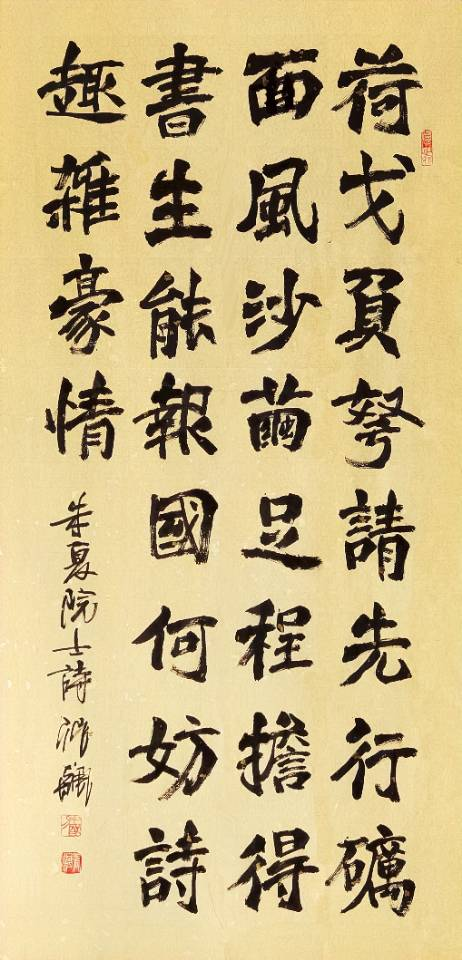 荷戈負弩請先行礪
面風沙繭足程擔得
書生能報國何妨詩
趣雜豪情
朱夏院士詩